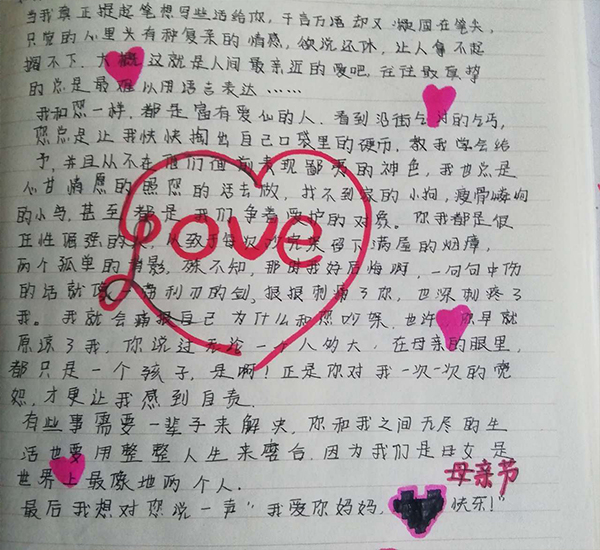 当我真正提起笔想写些话给你,千言万语却又凝固在笔尖,
只觉的心里头有种复杂的情感,欲说还休,让人拿不起
搁不下。大概这就是人间最亲近的爱吧,往往最真挚
的总是最难以用语言表达……
我和您一样,都是富有爱仙的人。看到沿街乞讨的乞丐,
您总是让我快快掏出自己口袋里的硬币,教我学会给
予,并且从不在他们面前表现鄙夷的神色,我也总是
心甘情愿的照您的话去做,找不到家的小狗,瘦骨嶙峋
的小鸟,甚至都是我们争着要护的对象。你我都是很
正性倔强的人,以致于每次吵完架留下满屋的烟瘴,
两个孤单的背影,殊不知,那时我好后悔啊,一句句中伤
的话就像一声利刃的剑,狠狠刺痛了你,也深刺疼了
我。我就会痛恨自己为什么和您吵架,也许,你早就
原谅了我,你说过无论一个人多大,在母亲的眼里,
都只是一个孩子,是啊!正是你对我一次一次的宽
恕,才更让我感到自责.
有些事需要一辈子来解决,你和我之间无尽的生
活也要用整整人生来磨合,因为我们是母女是
世界上最像地两个人.
母亲节
最后我想对您说一声"我爱你妈妈, 快乐!"
Love